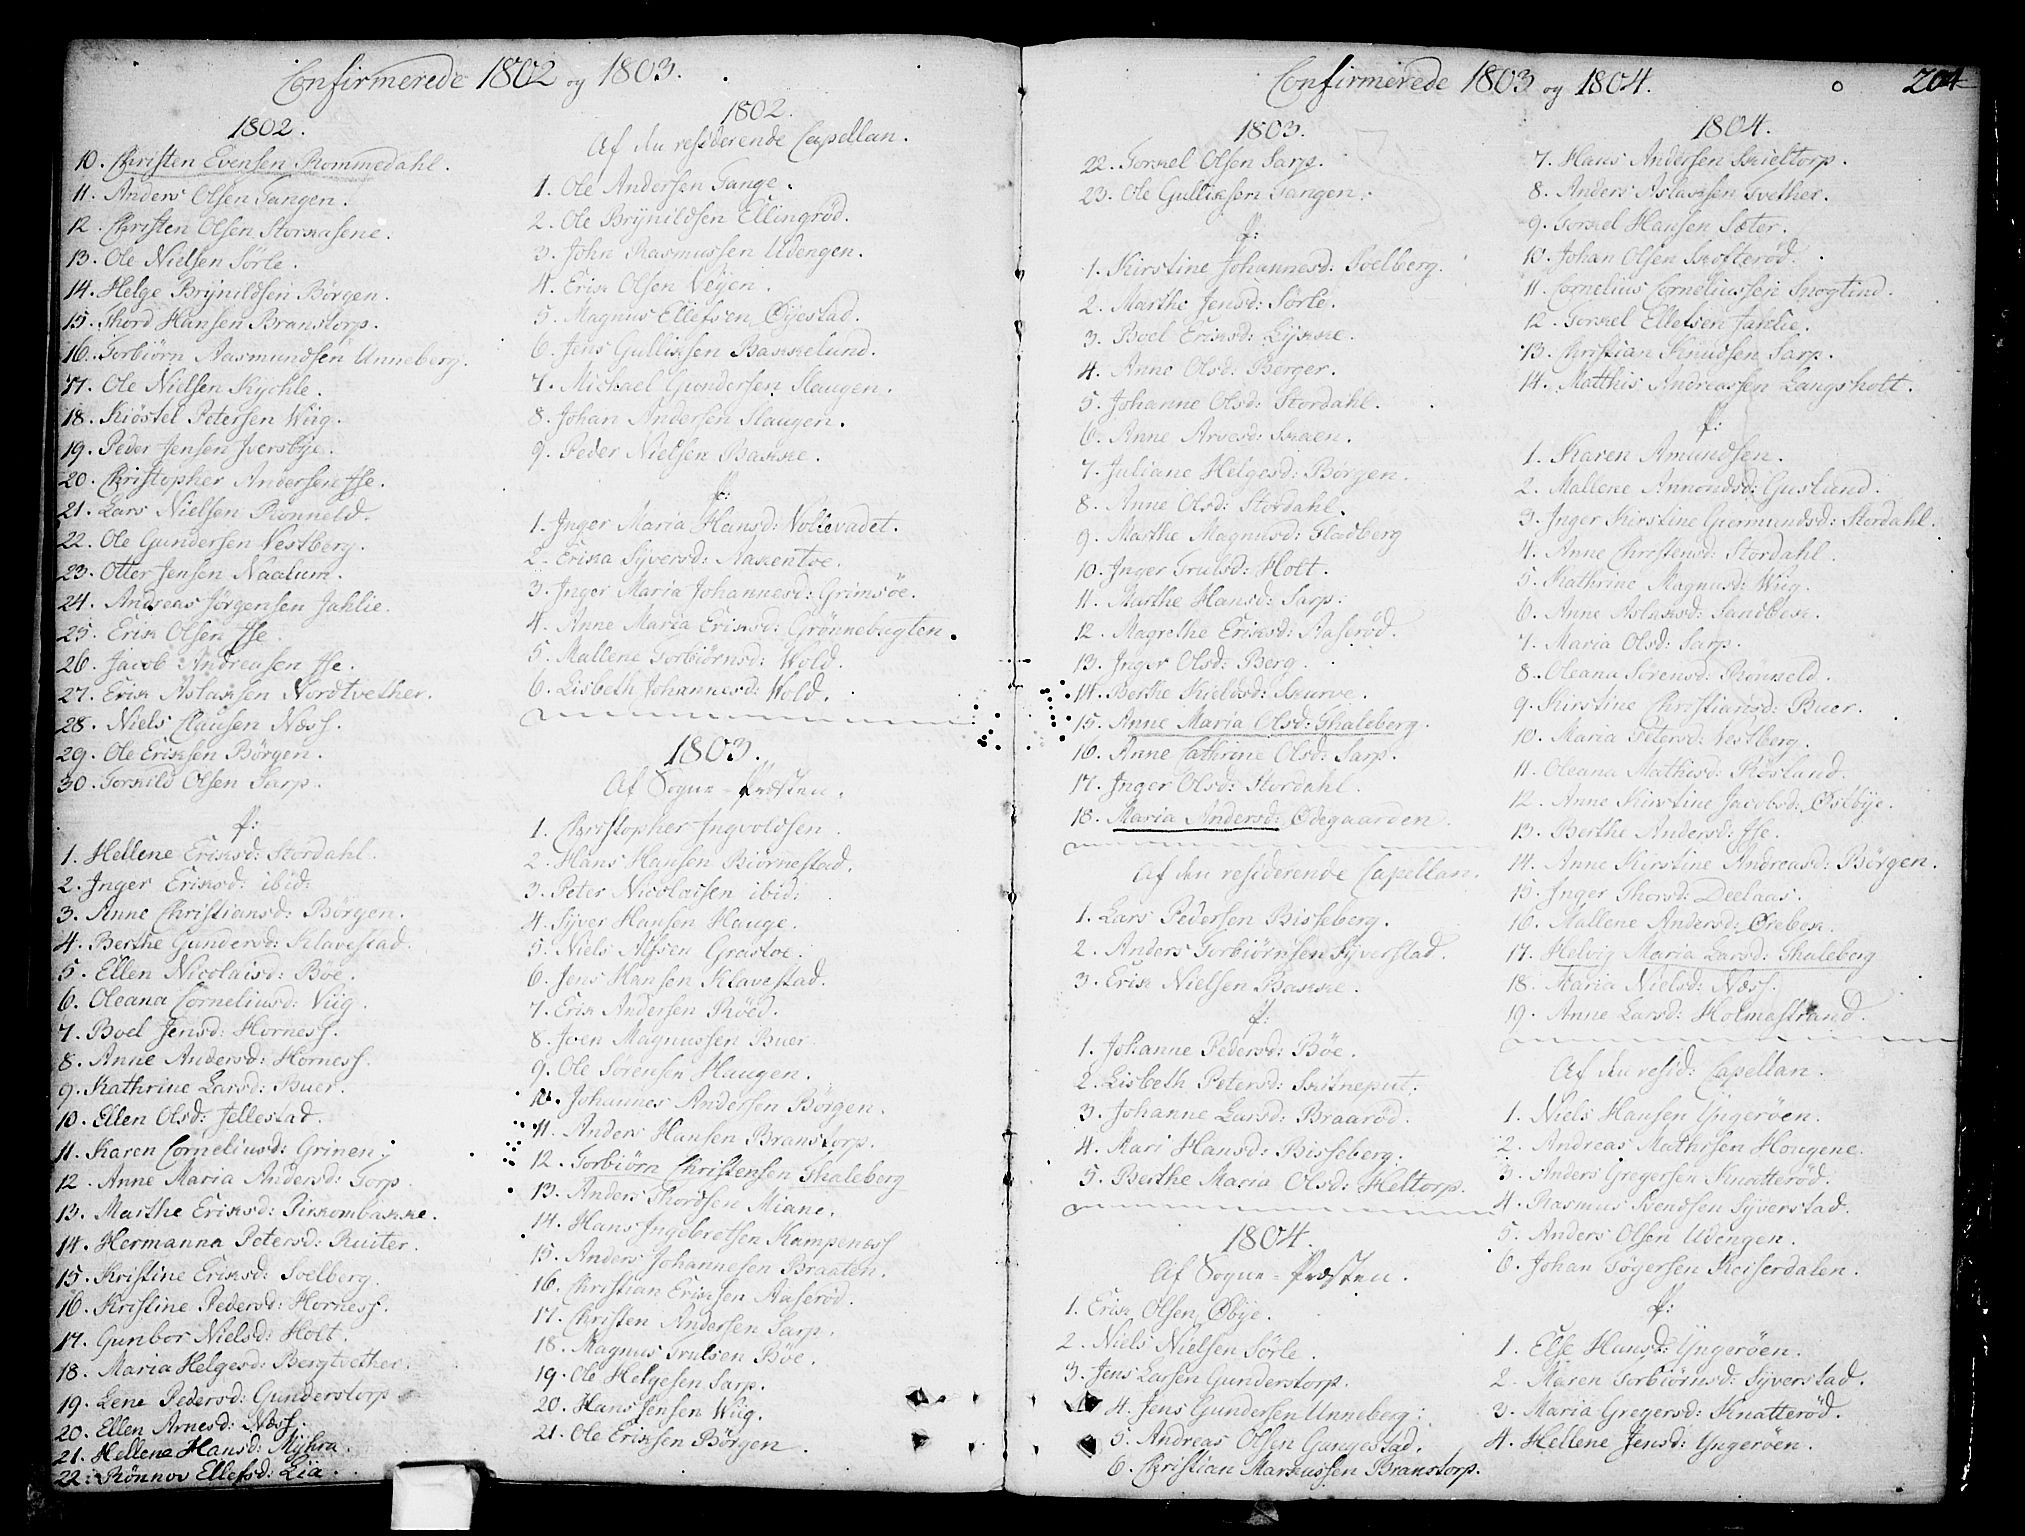 Confirmerede 1802 og 1803.
1802.
10. Christen Evensen Rommedahl.
11. Anders Olsen Tangen.
12. Christen Olsen Storkasene.
13. Ole Nielsen Sörle.
14. Helge Brynildsen Börgen.
15. Thord Hansen Branstorp.
16. Torbiörn Aasmundsen Unneberg.
17. Ole Nielsen
18. Kiöstel Petersen Wiig.
19. Peder Jensen Iversbye.
20. Christopher Andersen Ise.
21. Lars Nielsen Rönneld.
22. Ole Gundersen Vestberg.
23. Otter Jensen Naalum.
24. Andreas Jörgensen Jahlie.
25. Erik Olsen Ise.
26. Jacob Andreasen Ise.
27. Erik Aslaksen Nordtvether.
28. Niels Clausen Næss.
29. Ole Eriksen Börgen.
30. Torkild Olsen Sarp.
f:
1. Hellene Eriksd: Stordahl.
2. Inger Eriksd: ibid:
3. Anne Christiansd: Börgen.
4. Berthe Gundersd: Klavestad.
5. Ellen Nicolaisd: Böe.
6. Oleana Corneliusd: Viig.
7. Boel Jensd: Horness.
8. Anne Andersd: Horness.
9. Kathrine Larsd: Buer.
10. Ellen Olsd: Jellestad.
11. Karen Corneliusd: Grinen.
12. Anne Maria Andersd: Torp.
13. Marthe Eriksd: Pirkombakke.
14. Hermanna Petersd: Ruiter.
15. Kristine Eriksd: Solberg.
16. Kristine Pedersd: Horness.
17. Gunbor Nielsd: Holt.
18. Maria Helgesd: Bergtvether.
19. Lene Pedersd: Gunderstorp
20. Ellen Arnesd: Næss.
21. Hellene Hansd: Myhra.
22. Rönnov Ellefsd: Lia.
1802.
Af den residerende Capellan.
1. Ole Andersen Tange.
2. Ole Brynildsen Ellingröd.
3. John Rasmussen Udengen.
4. Erik Olsen Vejen.
5. Magnus Ellefsen Öyestad.
6. Jens Gulliksen Bakkelund.
7. Michael Gundersen Haugen.
8. Johan Andersen Haugen.
9. Peder Nielsen Bakke.
f:
1. Inger Maria Hansd: Vollevadet.
2. Erika Syversd: Nakentoe.
3. Inger Maria Johannesd: Grimsöe.
4. Anne Maria Eriksd: Grönnebugten.
5. Mallene Torbiörnsd: Wold.
6. Lisbeth Johannesd: Wold.
1803.
Af Sogne-Præsten.
1. Christopher Ingvoldsen
2. Hans Hansen Biörnestad.
3. Peter Nicolaisen ibid:
4. Syver Hansen Hauge.
5. Niels Alfsen Grastoe.
6. Jens Hansen Klavestad.
7. Erik Andersen Röed.
8. Joen Magnussen Buer
9. Ole Sörensen Haugen.
10. Johannes Andersen Börgen.
11. Anders Hansen Branstorp.
12. Torbiörn Christensen Skaleberg
13. Anders Thordsen Miane.
14. Hans Ingebretsen Kampeness
15. Anders Johannesen Braaten.
16. Christian Eriksen Aaseröd.
17. Christen Andersen Sarp.
18. Magnus Trulsen Böe.
19. Ole Helgesen Sarp.
20. Hans Jensen Wiig.
21. Ole Eriksen Börgen.
Confirmerede 1803 og 1804.
204
1803.
22. Torkel Olsen Sarp.
23. Ole Gulliksen Tangen.
f:
1. Kirstine Johannesd: Solberg.
2. Marthe Jensd: Sörle.
3. Boel Eriksd: Lykke.
4. Anne Olsd: Berger.
5. Johanne Olsd: Stordahl.
6. Anne Arvesd: Skaen.
7. Juliane Helgesd: Börgen.
8. Anne Olsd: Stordahl.
9. Marthe Magnusd: Fladberg
10. Inger Trulsd: Holt.
11. Marthe Hansd: Sarp.
12. Magrethe Eriksd: Aaseröd.
13. Inger Olsd: Berg.
14. Berthe Kieldsd: Skurve.
15. Anne Maria Olsd: Skaleberg.
16. Anne Cathrine Olsd: Sarp.
17. Inger Olsd: Stordahl.
18. Maria Andersd: Ödegaarden.
Af den residerende Capellan.
1. Lars Pedersen Bisseberg.
2. Anders Torbiörnsen Syverstad.
3. Erik Nielsen Bakke.
f:
1. Johanne Pedersd: Böe.
2. Lisbeth Petersd: Skitneput.
3. Johanne Larsd: Braaröd.
4. Kari Hansd: Bisseberg.
5. Berthe Maria Olsd: Heltorp.
1804.
Af Sogne-Præsten.
1. Erik Olsen Öbye.
2. Niels Nielsen Sörle.
3. Jens Larsen Gunderstorp.
4. Jens Gundersen Unneberg:
5. Andreas Olsen Gangestad.
6. Christian Markussen Branstorp.
1804.
7. Hans Andersen Skieltorp.
8. Anders Aslaksen Tvether.
9. Torkel Hansen Sæter.
10. Johan Olsen Skofteröd.
11. Cornelius Corneliussen Skogtind.
12. Torkel Ellefsen Jahlie.
13. Christian Knudsen Sarp.
14. Matthis Andreassen Langsholt.
f:
1. Karen Amundsen.
2. Mallene Annondsd: Guslund.
3. Inger Kirstine Giermundsd: Stordahl.
4. Anne Christensd: Stordahl.
5. Kathrine Magnusd: Wiig.
6. Anne Aslaksd: Sandbek.
7. Maria Olsd: Sarp.
8. Oleana Sörensd: Rönneld.
9. Kirstine Christiansd: Buer.
10. Maria Petersd: Vestberg.
11. Oleana Mathisd: Rösland.
12. Anne Kirstine Jacobsd: Östbye.
13. Berthe Andersd: Ise.
14. Anne Kirstine Andreasd: Börgen.
15. Inger Thorsd: Deelaas.
16. Mallene Andersd: Örebek.
17. Helvig Maria Larsd: Skaleberg
18. Maria Nielsd: Næss.
19. Anne Larsd: Holmestrand.
Af den resid: Capellan.
1. Niels Hansen Yngeröen.
2. Andreas Mathisen Hougene.
3. Anders Gregersen Knatteröd.
4. Rasmus Svendsen Syverstad.
5. Anders Olsen Udengen.
6. Johan Togersen Keiserdalen.
f:
1. Else Hansd: Yngeröen.
2. Karen Torbiörnsd: Syverstad.
3. Maria Gregersd: Knatteröd.
4. Hellene Jensd: Yngeröen.